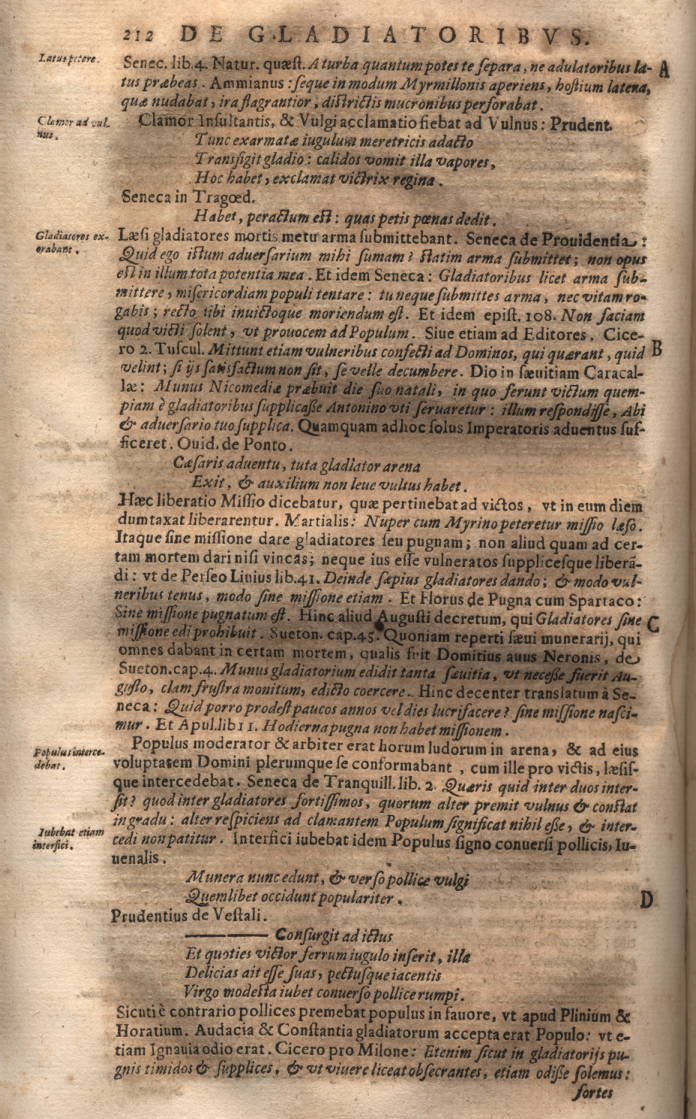 212 DE GLADIATORIBVS.
Latus petere.
Senec. lib. 4. Natur. quæst. A turba quantum potes te separa, ne adulatoribus la- A
tus præbeas. Ammianus: seque in modum Myrmillonis aperiens, hostium latera,
quæ nudabat, ira flagrantior, districtis mucronibus perforabat.
Clamor ad vul
nus.
Clamor Insultantis, & Vulgi acclamatio fiebat ad Vulnus: Prudent.
Tunc exarmatæ iugulum meretricis adacto
Transfigit gladio: calidos vomit illa vapores,
Hoc habet, exclamat victrix regina.
Seneca in Tragœd.
Habet, peractum est: quas petis pœnas dedit.
Gladiatores ex-
orabant.
Læsi gladiatores mortis metu arma submittebant. Seneca de Prouidentia:
Quid ego istum aduersarium mihi sumam? statim arma submittet; non opus
est in illum tota potentia mea. Et idem Seneca: Gladiatoribus licet arma sub-
mittere, misericordiam populi tentare: tu neque submittes arma, nec vitam ro-
gabis; recto tibi inuictoque moriendum est. Et idem epist. 108. Non faciam
quod victi solent, vt prouocem ad Populum. Siue etiam ad Editores. Cice-
ro 2. Tuscul. Mittunt etiam vulneribus confecti ad Dominos, qui quærant, quid B
velint; si ijs satisfactum non sit, se velle decumbere. Dio in sæuitiam Caracal-
læ: Munus Nicomediæ præbuit die suo natali, in quo ferunt victum quem-
piam è gladiatoribus supplicasse Antonino vti seruaretur: illum respondisse, Abi
& aduersario tuo supplica. Quamquam adhoc solus Imperatoris aduentus suf-
ficeret. Ouid. de Ponto.
Cæsaris aduentu, tuta gladiator arena
Exit, & auxilium non leue vultus habet.
Hæc liberatio Missio dicebatur, quæ pertinebat ad victos, vt in eum diem
dumtaxat liberarentur. Martialis: Nuper cum Myrino peteretur missio læso.
Itaque sine missione dare gladiatores seu pugnam; non aliud quam ad cer-
tam mortem dari nisi vincas; neque ius esse vulneratos supplicesque liberā-
di: vt de Perseo Liuius lib. 41. Deinde sæpius gladiatores dando; & modo vul-
neribus tenus, modo sine missione etiam. Et Florus de Pugna cum Spartaco:
Sine missione pugnatum est. Hinc aliud Augusti decretum, qui Gladiatores sine C
missione edi prohibuit. Sueton. cap. 45. Quoniam reperti sæui munerarij, qui
omnes dabant in certam mortem, qualis fuit Domitius auus Neronis, de
Sueton. cap. 4. Munus gladiatorium edidit tanta sæuitia, vt necesse fuerit Au-
gusto, clam frustra monitum, edicto coercere. Hinc decenter translatum à Se-
neca: Quid porro prodest paucos annos vel dies lucrifacere? sine missione nasci-
mur. Et Apul. lib 11. Hodierna pugna non habet missionem.
Populus interce-
debat.
Populus moderator & arbiter erat horum ludorum in arena, & ad eius
voluptatem Domini plerumque se conformabant, cum ille pro victis, læsis-
que intercedebat. Seneca de Tranquill. lib. 2. Quæris quid inter duos inter-
sit? quod inter gladiatores fortissimos, quorum alter premit vulnus & constat
in gradu: alter respiciens ad clamantem Populum significat nihil esse, & inter-
Iubebat etiam
interfici.
cedi non patitur. Interfici iubebat idem Populus signo conuersi pollicis, Iu-
uenalis.
Munera nunc edunt, & verso pollice vulgi
Quemlibet occidunt populariter. D
Prudentius de Vestali.
——— Consurgit ad ictus
Et quoties victor ferrum iugulo inserit, illa
Delicias ait esse suas, pectusque iacentis
Virgo modesta iubet conuerso pollice rumpi.
Sicuti è contrario pollices premebat populus in fauore, vt apud Plinium &
Horatium. Audacia & Constantia gladiatorum accepta erat Populo: vt e-
tiam Ignauia odio erat. Cicero pro Milone: Etenim sicut in gladiatorijs pu-
gnis timidos & supplices, & vt viuere liceat obsecrantes, etiam odisse solemus:
fortes